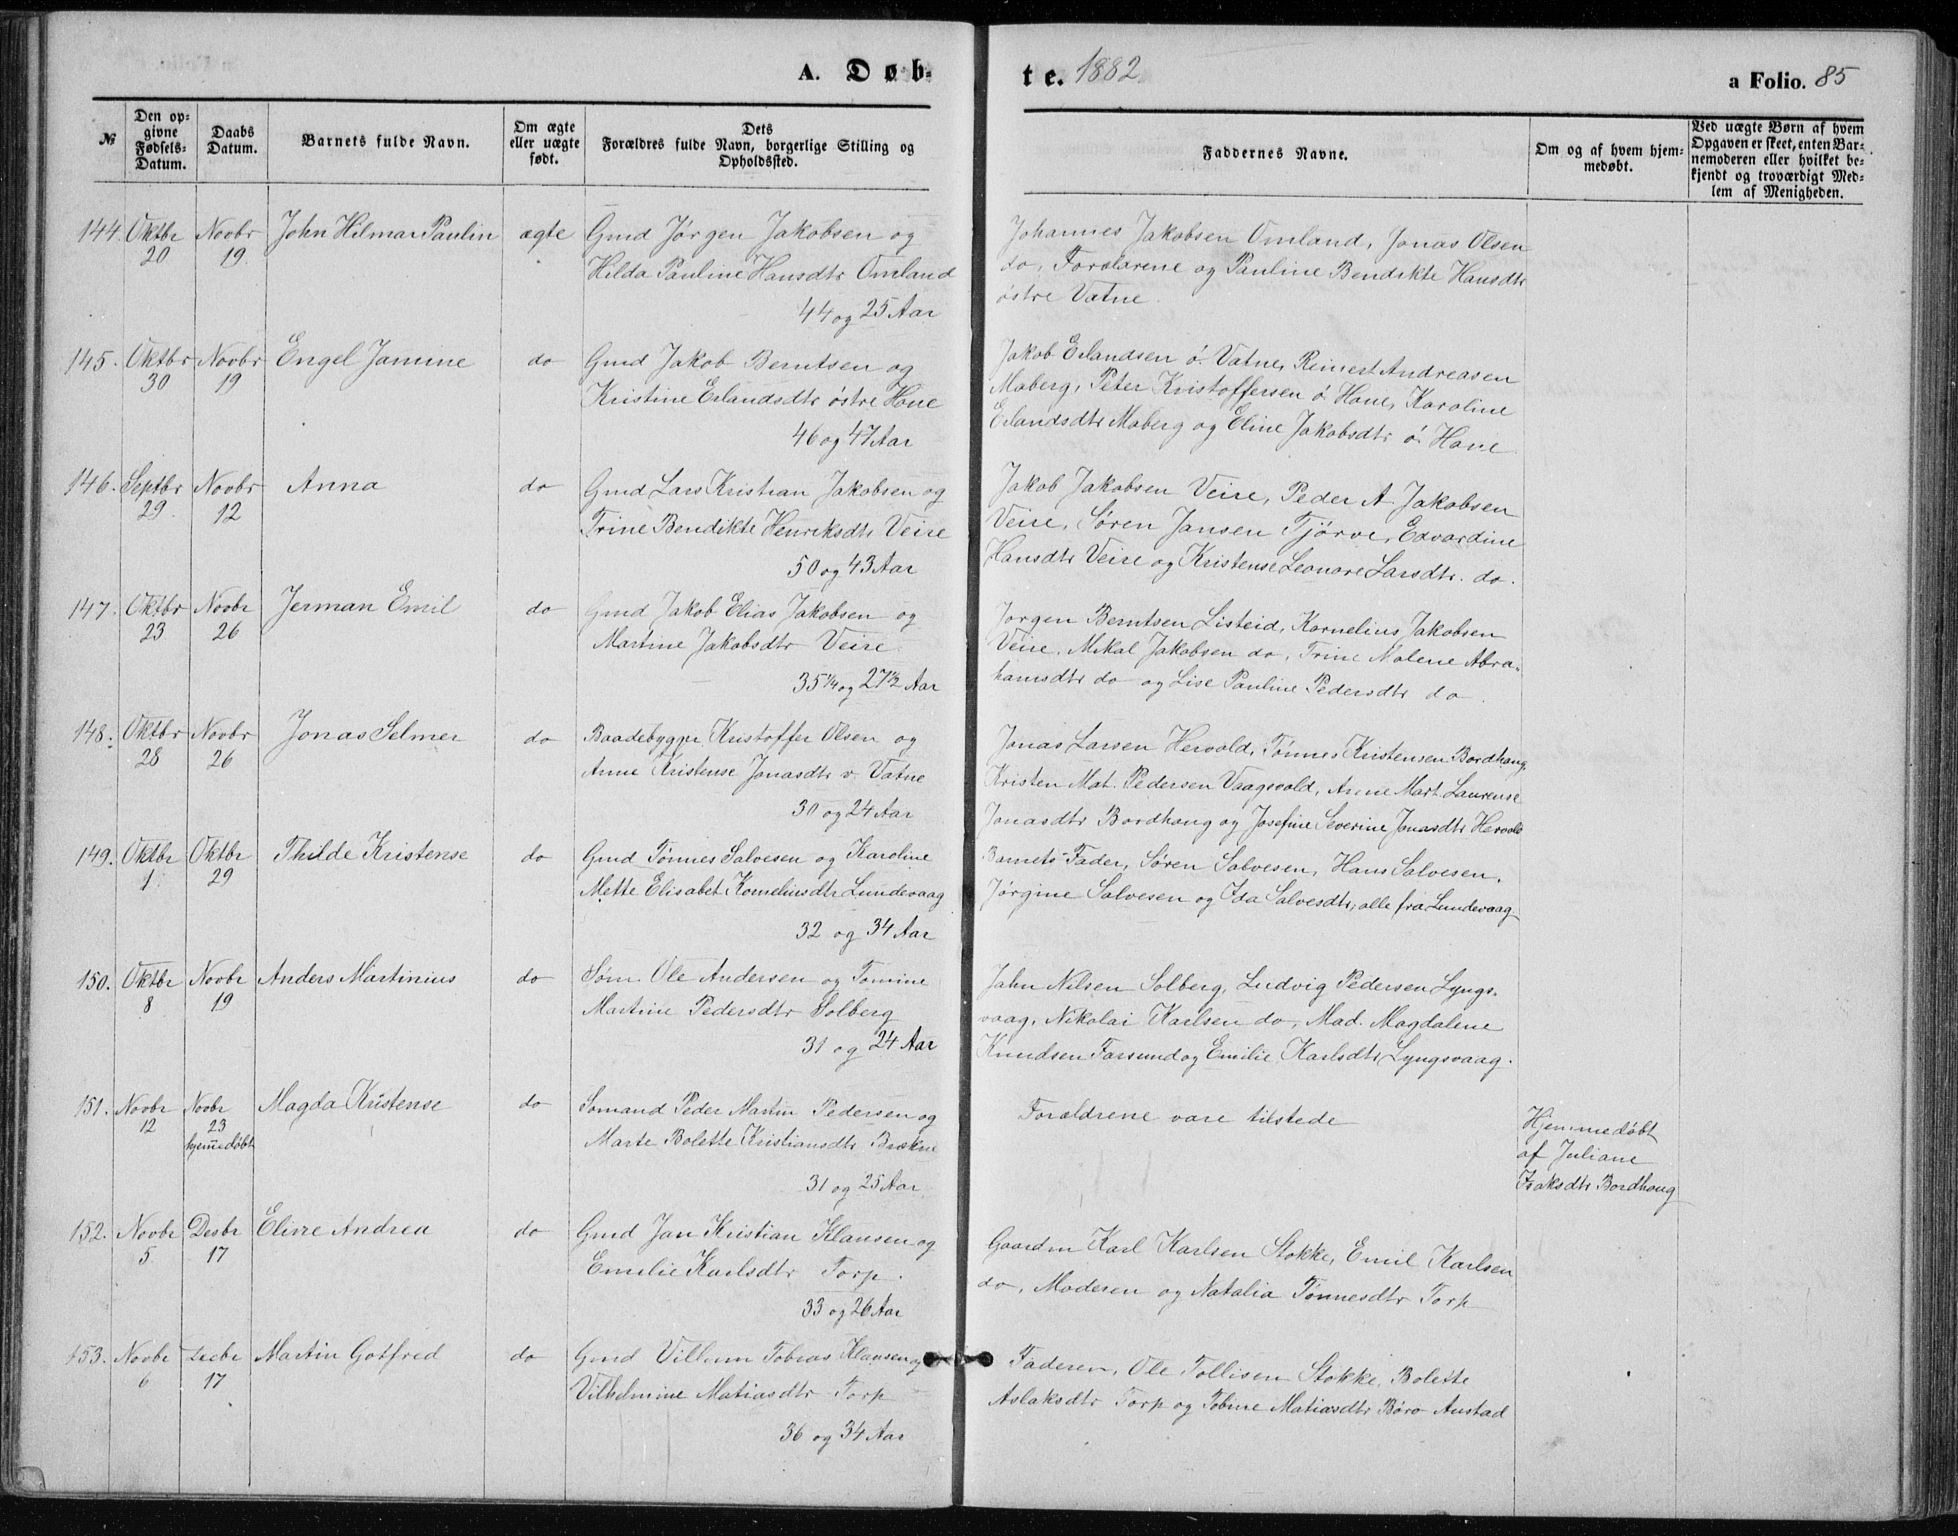 A. Døb-
te. 1882
a Folio. 85
№
Den op-
givne
Fødsels-
Datum.
Daabs
Datum.
Barnets fulde Navn.
Om ægte
eller uægte
født.
Dets
Forældres fulde Navn, borgerlige Stilling og
Opholdssted.
Faddernes Navne.
Om og af hvem hjem-
medøbt.
Ved uægte Børn af hvem
Opgaven er skeet, enten Bar-
nemoderen eller hvilket be-
kjendt og troværdigt Med-
lem af Menigheden.
144 Oktbr 20 Novbr 19 John Hilmar Paulin ægte Gmd Jørgen Jakobsen og
Hilda Pauline Hansdtr Omland
44 og 25 Aar
Johannes Jakobsen Omland, Jonas Olsen
do, Forældrene og Pauline Bendikte Hansdtr
østre Vatne
145. Oktbr 30 Novbr 19 Engel Jamine do Gmd Jakob Berntsen og
Kristine Erlandsdtr østre Hone
46 og 47 Aar
Jakob Erlandsen ø. Vatne, Reinert Andreasen
Maberg, Peter Kristoffersen ø. Hane, Karoline
Erlandsdtr Maberg og Eline Jakobsdtr ø. Hane
146. Septbr 29 Novbr 12 Anna do Gmd Lars Kristian Jakobsen og
Trine Bendikte Henriksdtr Veire
50 og 43 Aar
Jakob Jakobsen Veire, Peder A. Jakobsen
Veire, Søren Jansen Tjørve, Edvardine
Hansdtr Veire og Kristense Leonore Larsdtr. do.
147. Oktbr 23 Novbr 26 Jerman Emil do Gmd Jakob Elias Jakobsen og
Martine Jakobsdtr Veire
35 1/4 og 27 1/2 Aar
Jørgen Berntsen Listeid, Kornelius Jakobsen
Veire, Mikal Jakobsen do, Trine Malene Abra-
hamsdtr do og Lise Pauline Pedersdtr do
148. Oktbr 28 Novbr 26 Jonas Selmer do Baadebygger Kristoffer Olsen og
Anne Kristense Jonasdtr v. Vatne
30 og 24 Aar
Jonas Larsen Hervold, Tønnes Kristensen Bordhaug,
Kristen Mat. Pedersen Vaagsvold, Anne Mart. Laurense
Jonasdtr Bordhaug og Josefine Severine Jonasdtr Hervold
149. Oktbr 1 Oktbr 29 Thilde Kristense do Gmd Tønnes Salvesen og Karoline
Mette Elisabet Kornelinsdtr Lundevaag
32 og 34 Aar
Barnets Fader, Søren Salvesen, Hans Salvesen,
Jørgine Salvesen og Ida Salvesdtr, alle fra Lundevaag
150. Oktbr 8 Novbr 19 Anders Martinius do Søm. Ole Andersen og Tomine
Martine Pedersdtr Solberg
31 og 24 Aar
Jahn Nilsen Solberg, Ludvig Pedersen Lyngs-
vaag, Nikolai Karlsen do, Mad. Magdalene
Knudsen Farsund og Emilie Karlsdtr Lyngsvaag.
151. Novbr 12 Novbr 23 hjemedøbt Magda Kristense do Sømand Peder Martin Pedersen og
Marte Bolette Kristiansdtr Brekne
31 og 25 Aar
Forældrene vare tilstede
Hjemmedøbt
af Juliane
Isaksdtr Bordhaug
152. Novbr 5 Desbr 17 Elivre Andrea do Gmd Jan Kristian Klausen og
Emilie Karlsdtr Torp.
33 og 26 Aar
Gaardm Karl Karlsen Stokke, Emil Karlsen
do, Moderen og Natalia Tønnesdtr Torp
153. Novbr 6 Decbr 17 Martin Gotfred do Gmd Villum Tobias Klausen og
Vilhelmine Matiasdtr Torp
36 og 34 Aar
Faderen, Ole Tollisen Stokke, Bolette
Aslaksdtr Torp og Tobine Matiasdtr Børo Austad